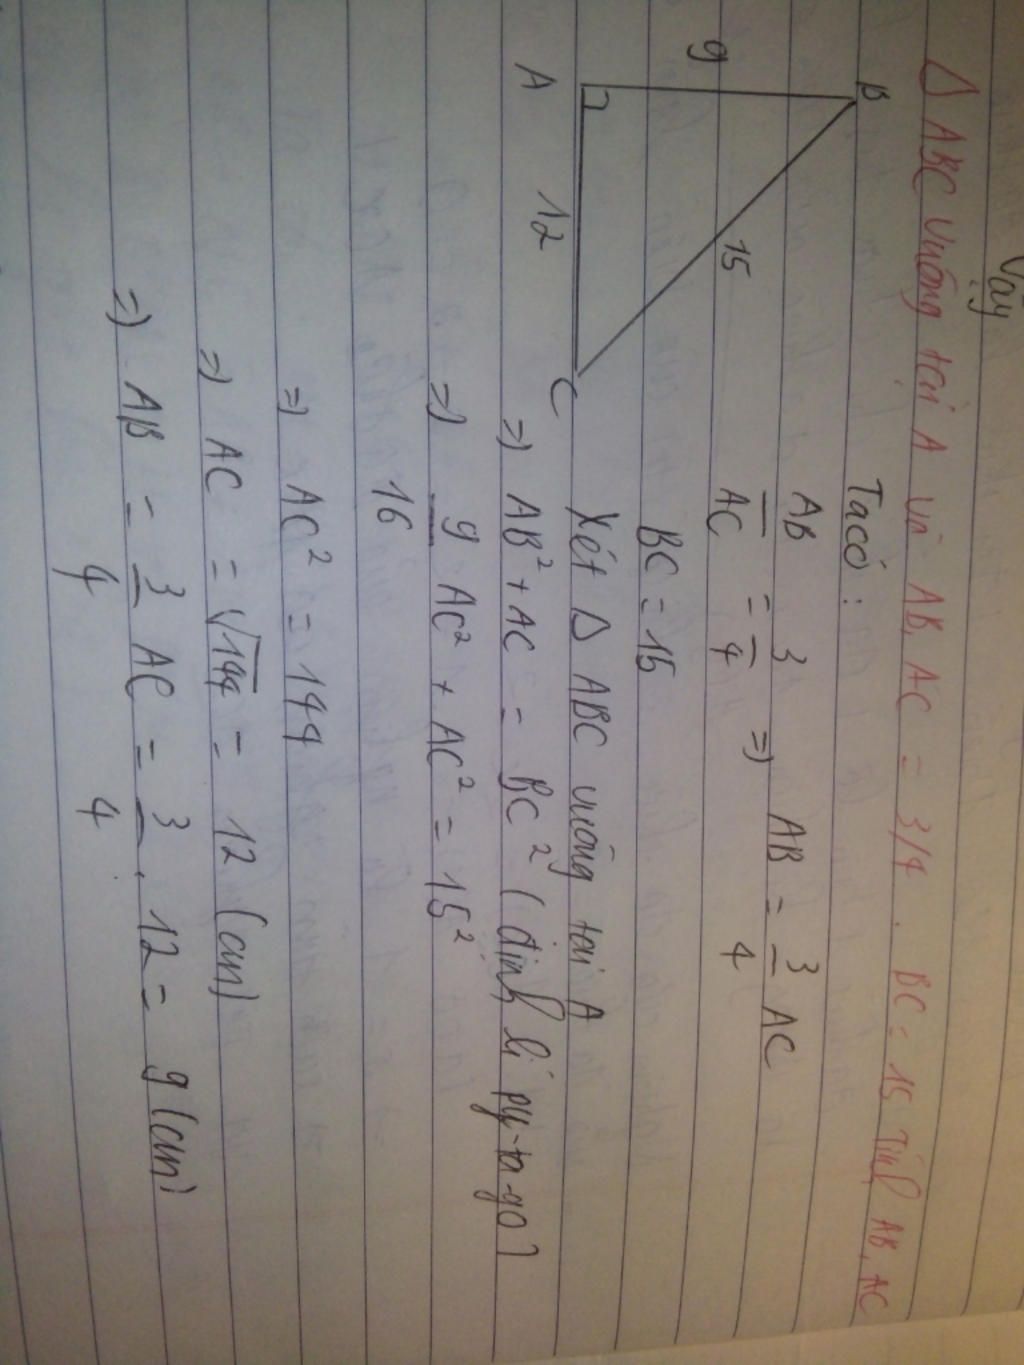 Vậy
Δ ABC vuông tại A và AB, AC = 3/4 . BC = 15 Tính AB, AC
Ta có :
B
9
15
A
12
C
AB/AC = 3/4 => AB = 3/4 AC
BC = 15
Xét Δ ABC vuông tại A
=) AB² + AC = BC² ( định lí py-ta-go)
=) 9/16 AC² + AC² = 15²
=) AC² = 144
=) AC = √144 = 12 (cm)
=) AB = 3/4 AC = 3/4 . 12 = 9 (cm)